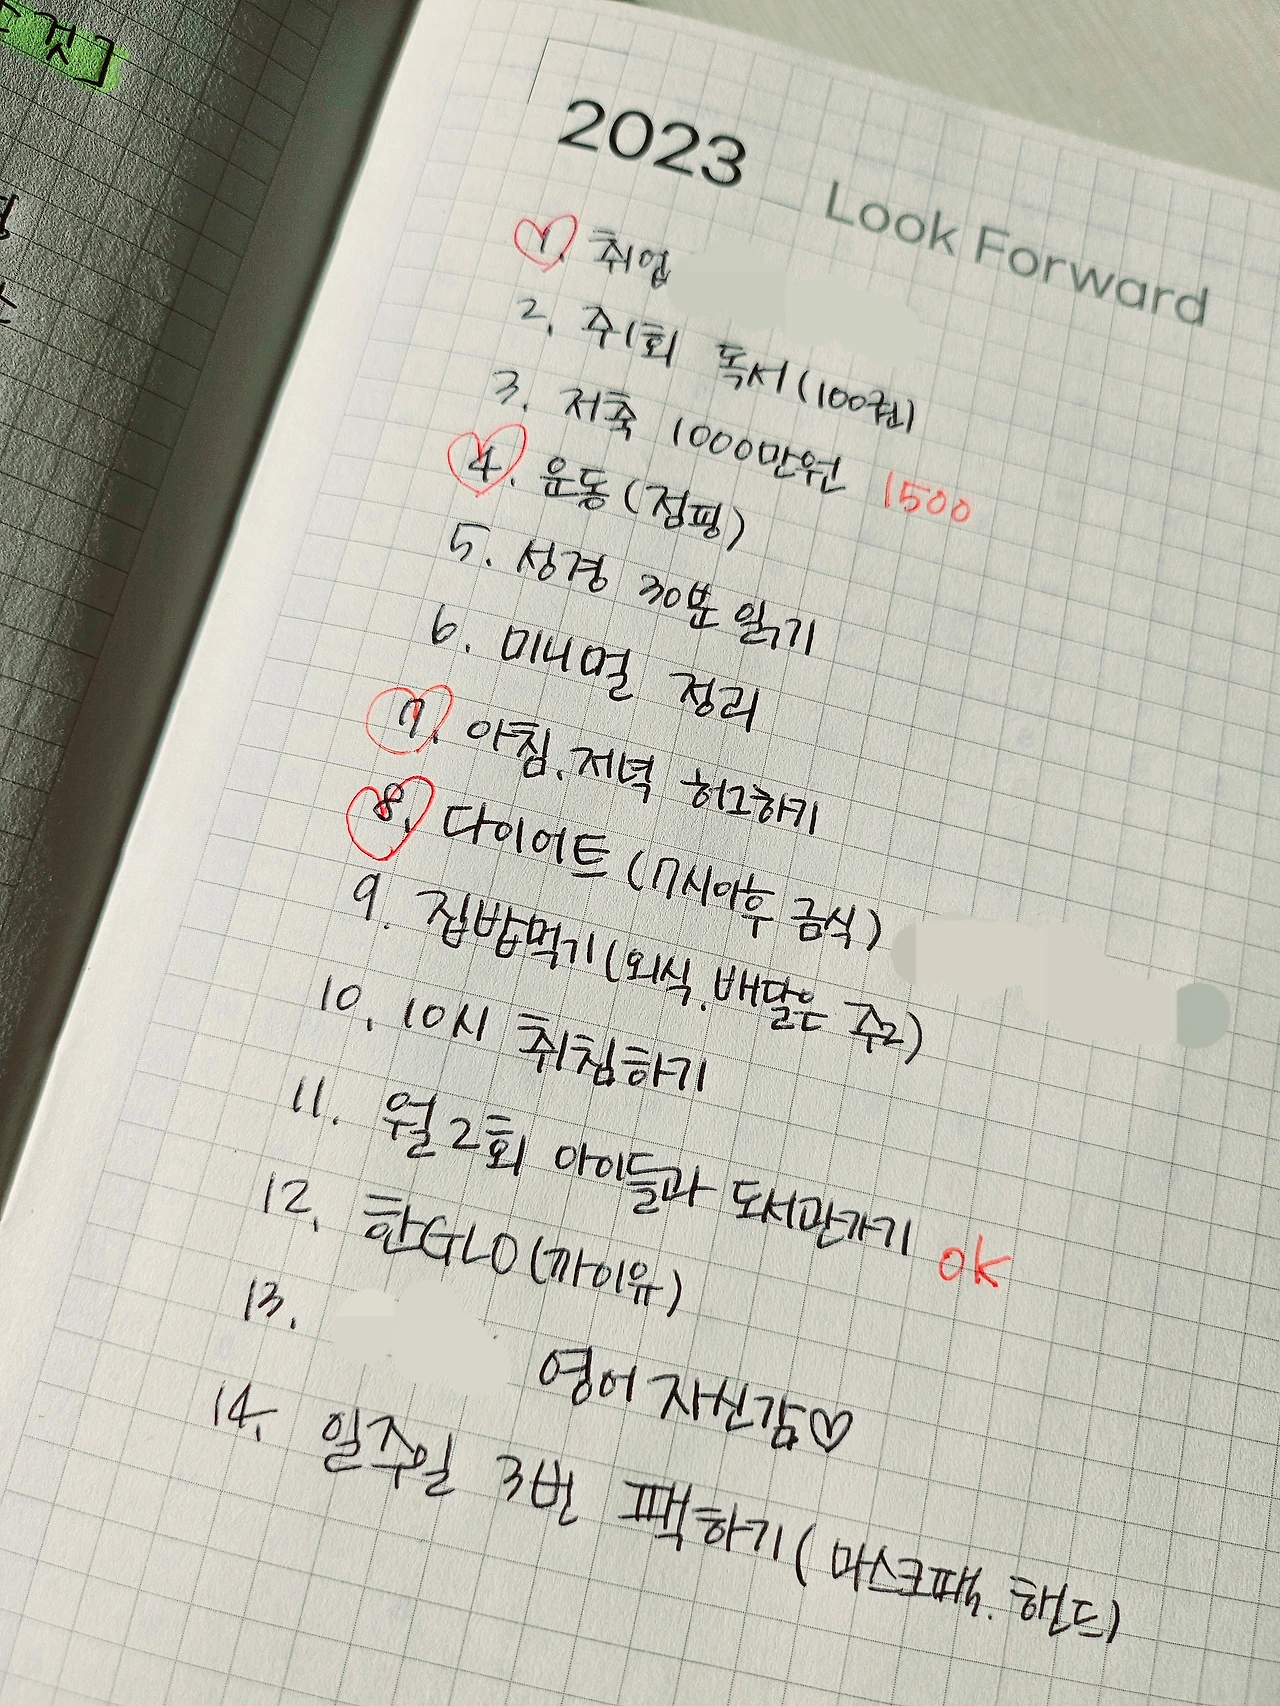 것]
2023 Look Forward
1. 취업
2. 주1회 독서(100권)
3. 저축 1000만원 1500
4. 운동(점핑)
5. 성경 30분 읽기
6. 미니멀 정리
7. 아침.저녁 허그하기
8. 다이어트(7시이후 금식)
9. 집밥먹기(외식.배달은 주2)
10. 10시 취침하기
11. 월2회 아이들과 도서관가기 ok
12. 한GLO(까이유)
13. 영어 자신감♡
14. 일주일 3번 팩하기(마스크팩. 핸드)